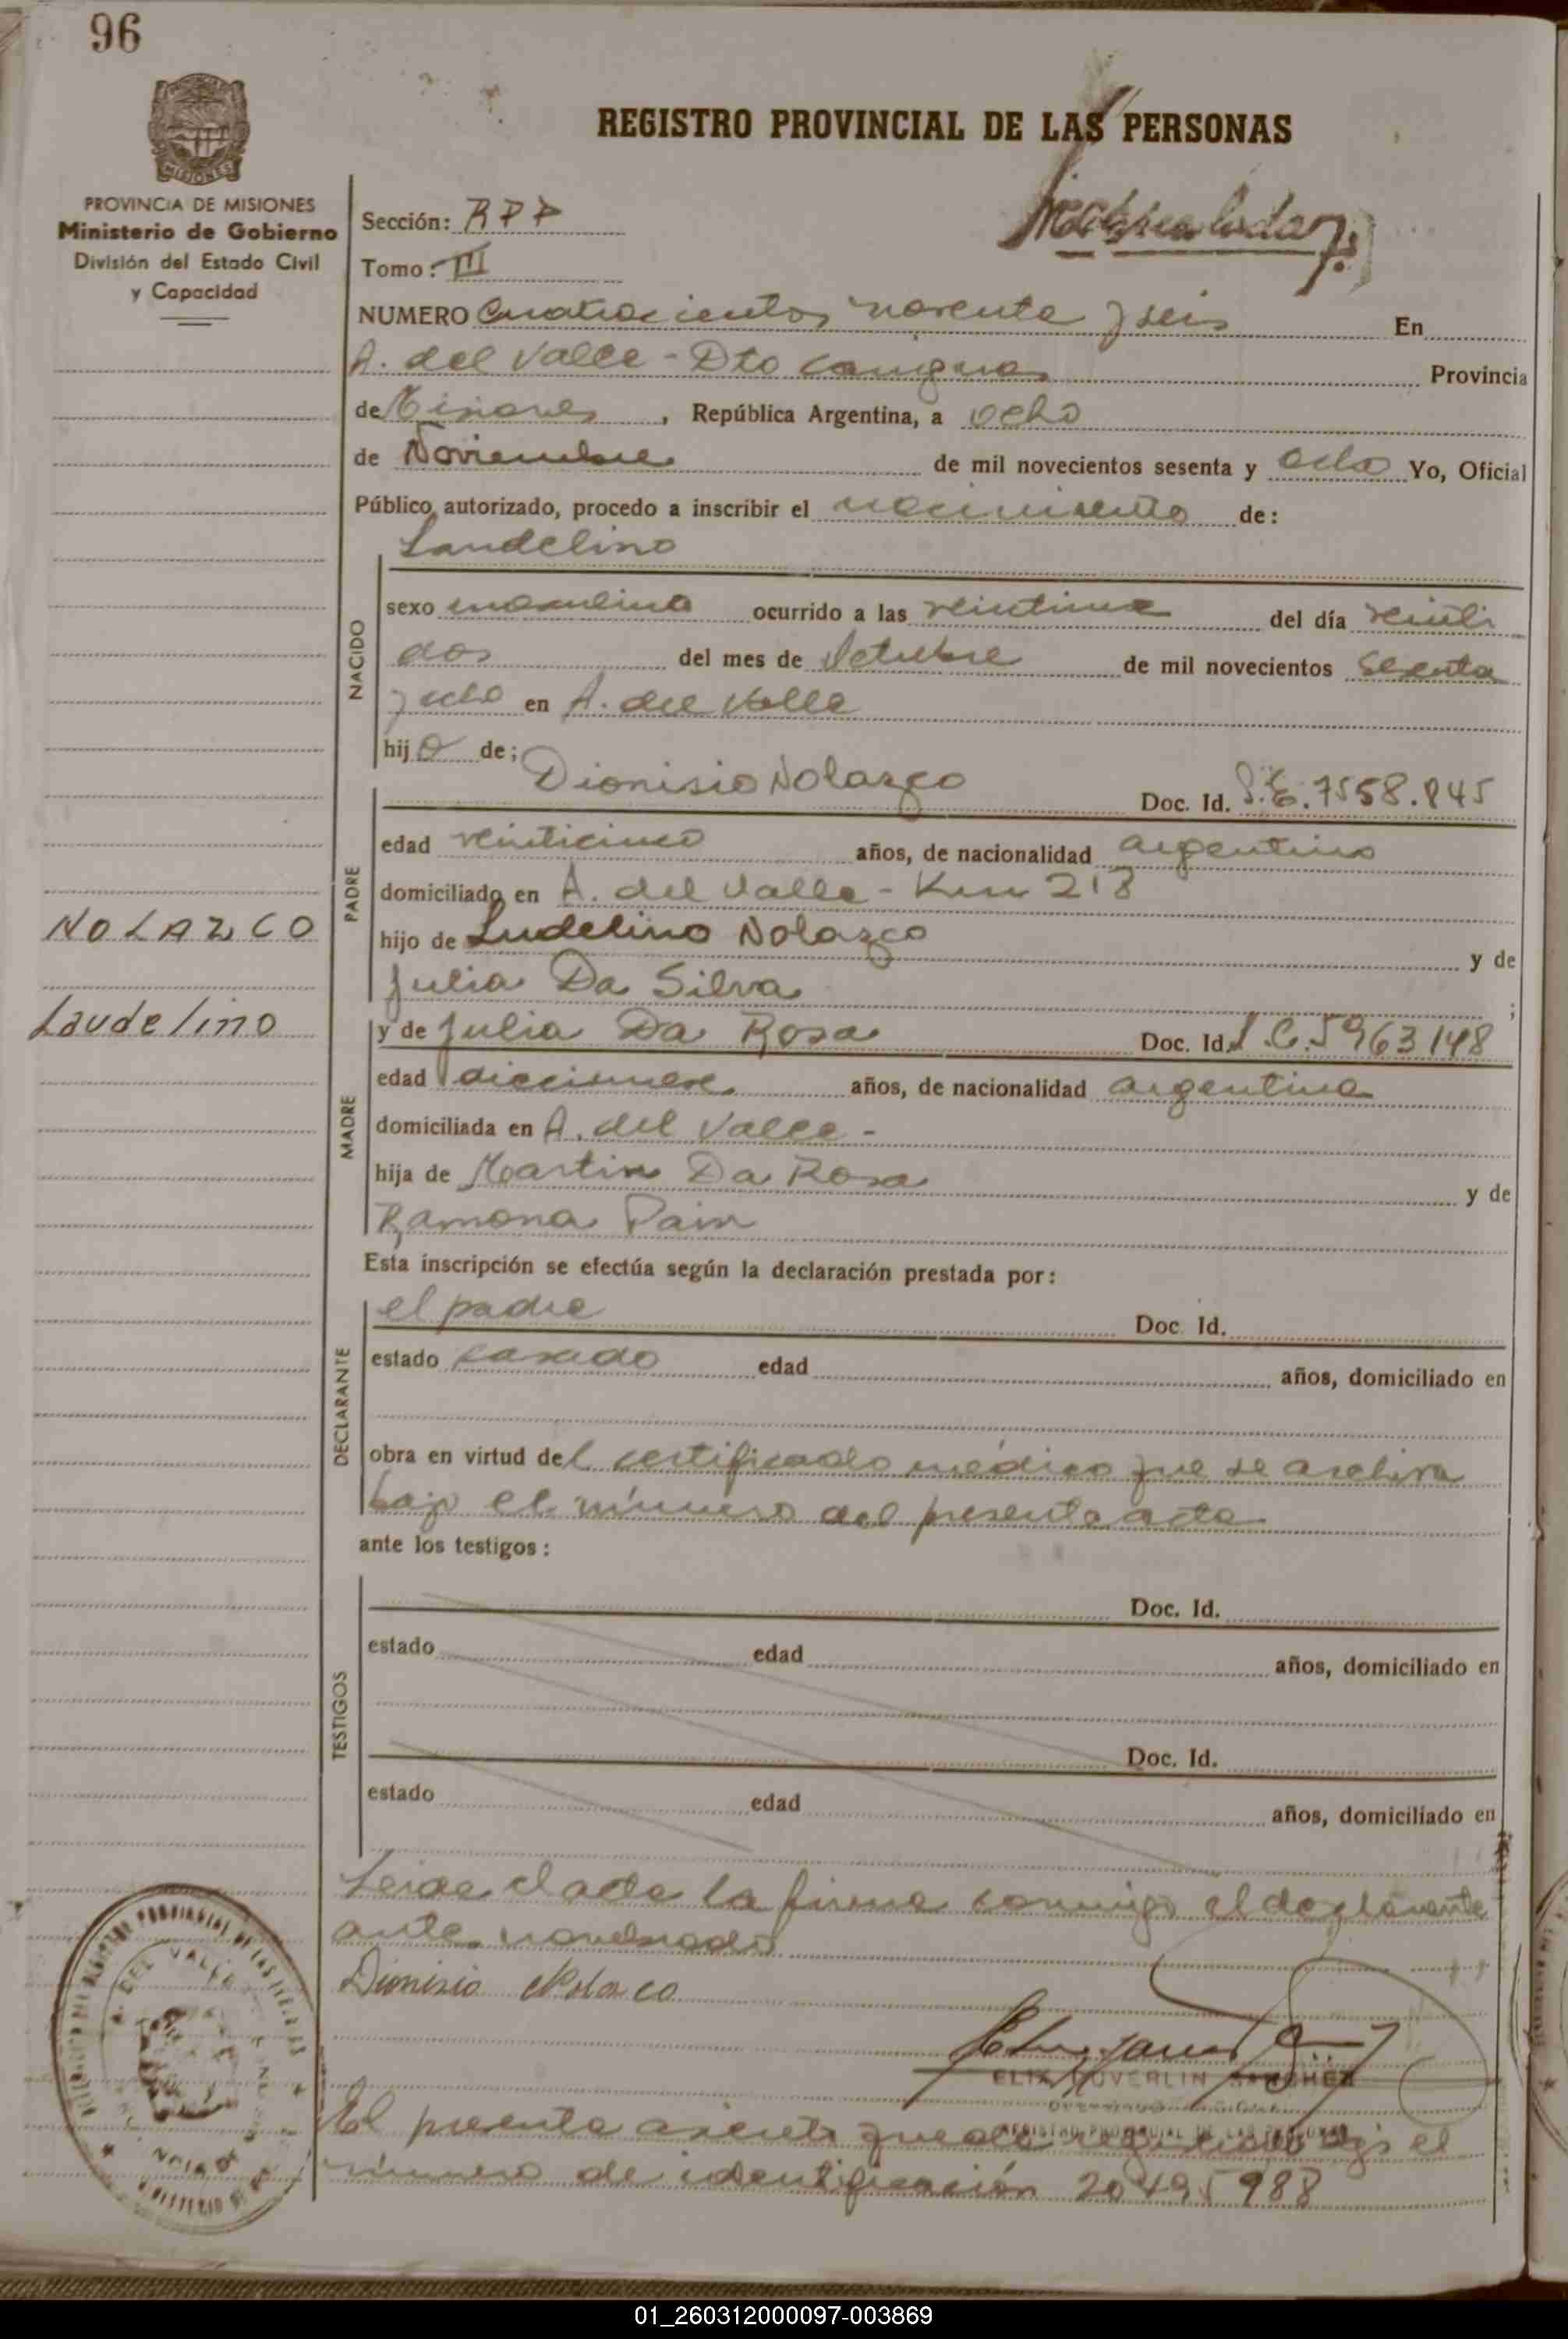 96
PROVINCIA DE MISIONES
Ministerio de Gobierno
División del Estado Civil
y Capacidad
REGISTRO PROVINCIAL DE LAS PERSONAS
Sección: RPP
Tomo: III
NUMERO Cuatrocientos noventa y seis En
A. del Valle - Dto Cainguas Provincia
de Misiones, República Argentina, a ocho
de Noviembre de mil novecientos sesenta y ocho Yo, Oficial
Público autorizado, procedo a inscribir el nacimiento de:
Laudelino
NACIDO
sexo masculino ocurrido a las del día veinti
dos del mes de Octubre de mil novecientos sesenta
y ocho en A. del Valle
hijo de;
Dionisio Nolazco Doc. Id. 7558.845
PADRE
edad veinticinco años, de nacionalidad argentino
domiciliado en A. del Valle - Km 218
hijo de Ludelino Nolazco y de
Julia Da Silva ;
NOLAZCO
Laudelino
MADRE
y de Julia Da Rosa Doc. Id. L.C. 5963148
edad diecinueve años, de nacionalidad argentina
domiciliada en A. del Valle -
hija de Martin Da Rosa y de
Ramona Pain
Esta inscripción se efectúa según la declaración prestada por:
DECLARANTE
el padre Doc. Id.
estado casado edad años, domiciliado en
obra en virtud del certificado médico que se archiva
bajo el número del presente acta
ante los testigos:
TESTIGOS
Doc. Id.
estado edad años, domiciliado en
Doc. Id.
estado edad años, domiciliado en
Leida el acta la firma conmigo el declarante
ante nombrado
Dionisio Nolaco
El presente asiento queda registrado bajo el
número de identificación 20495988
01_260312000097-003869